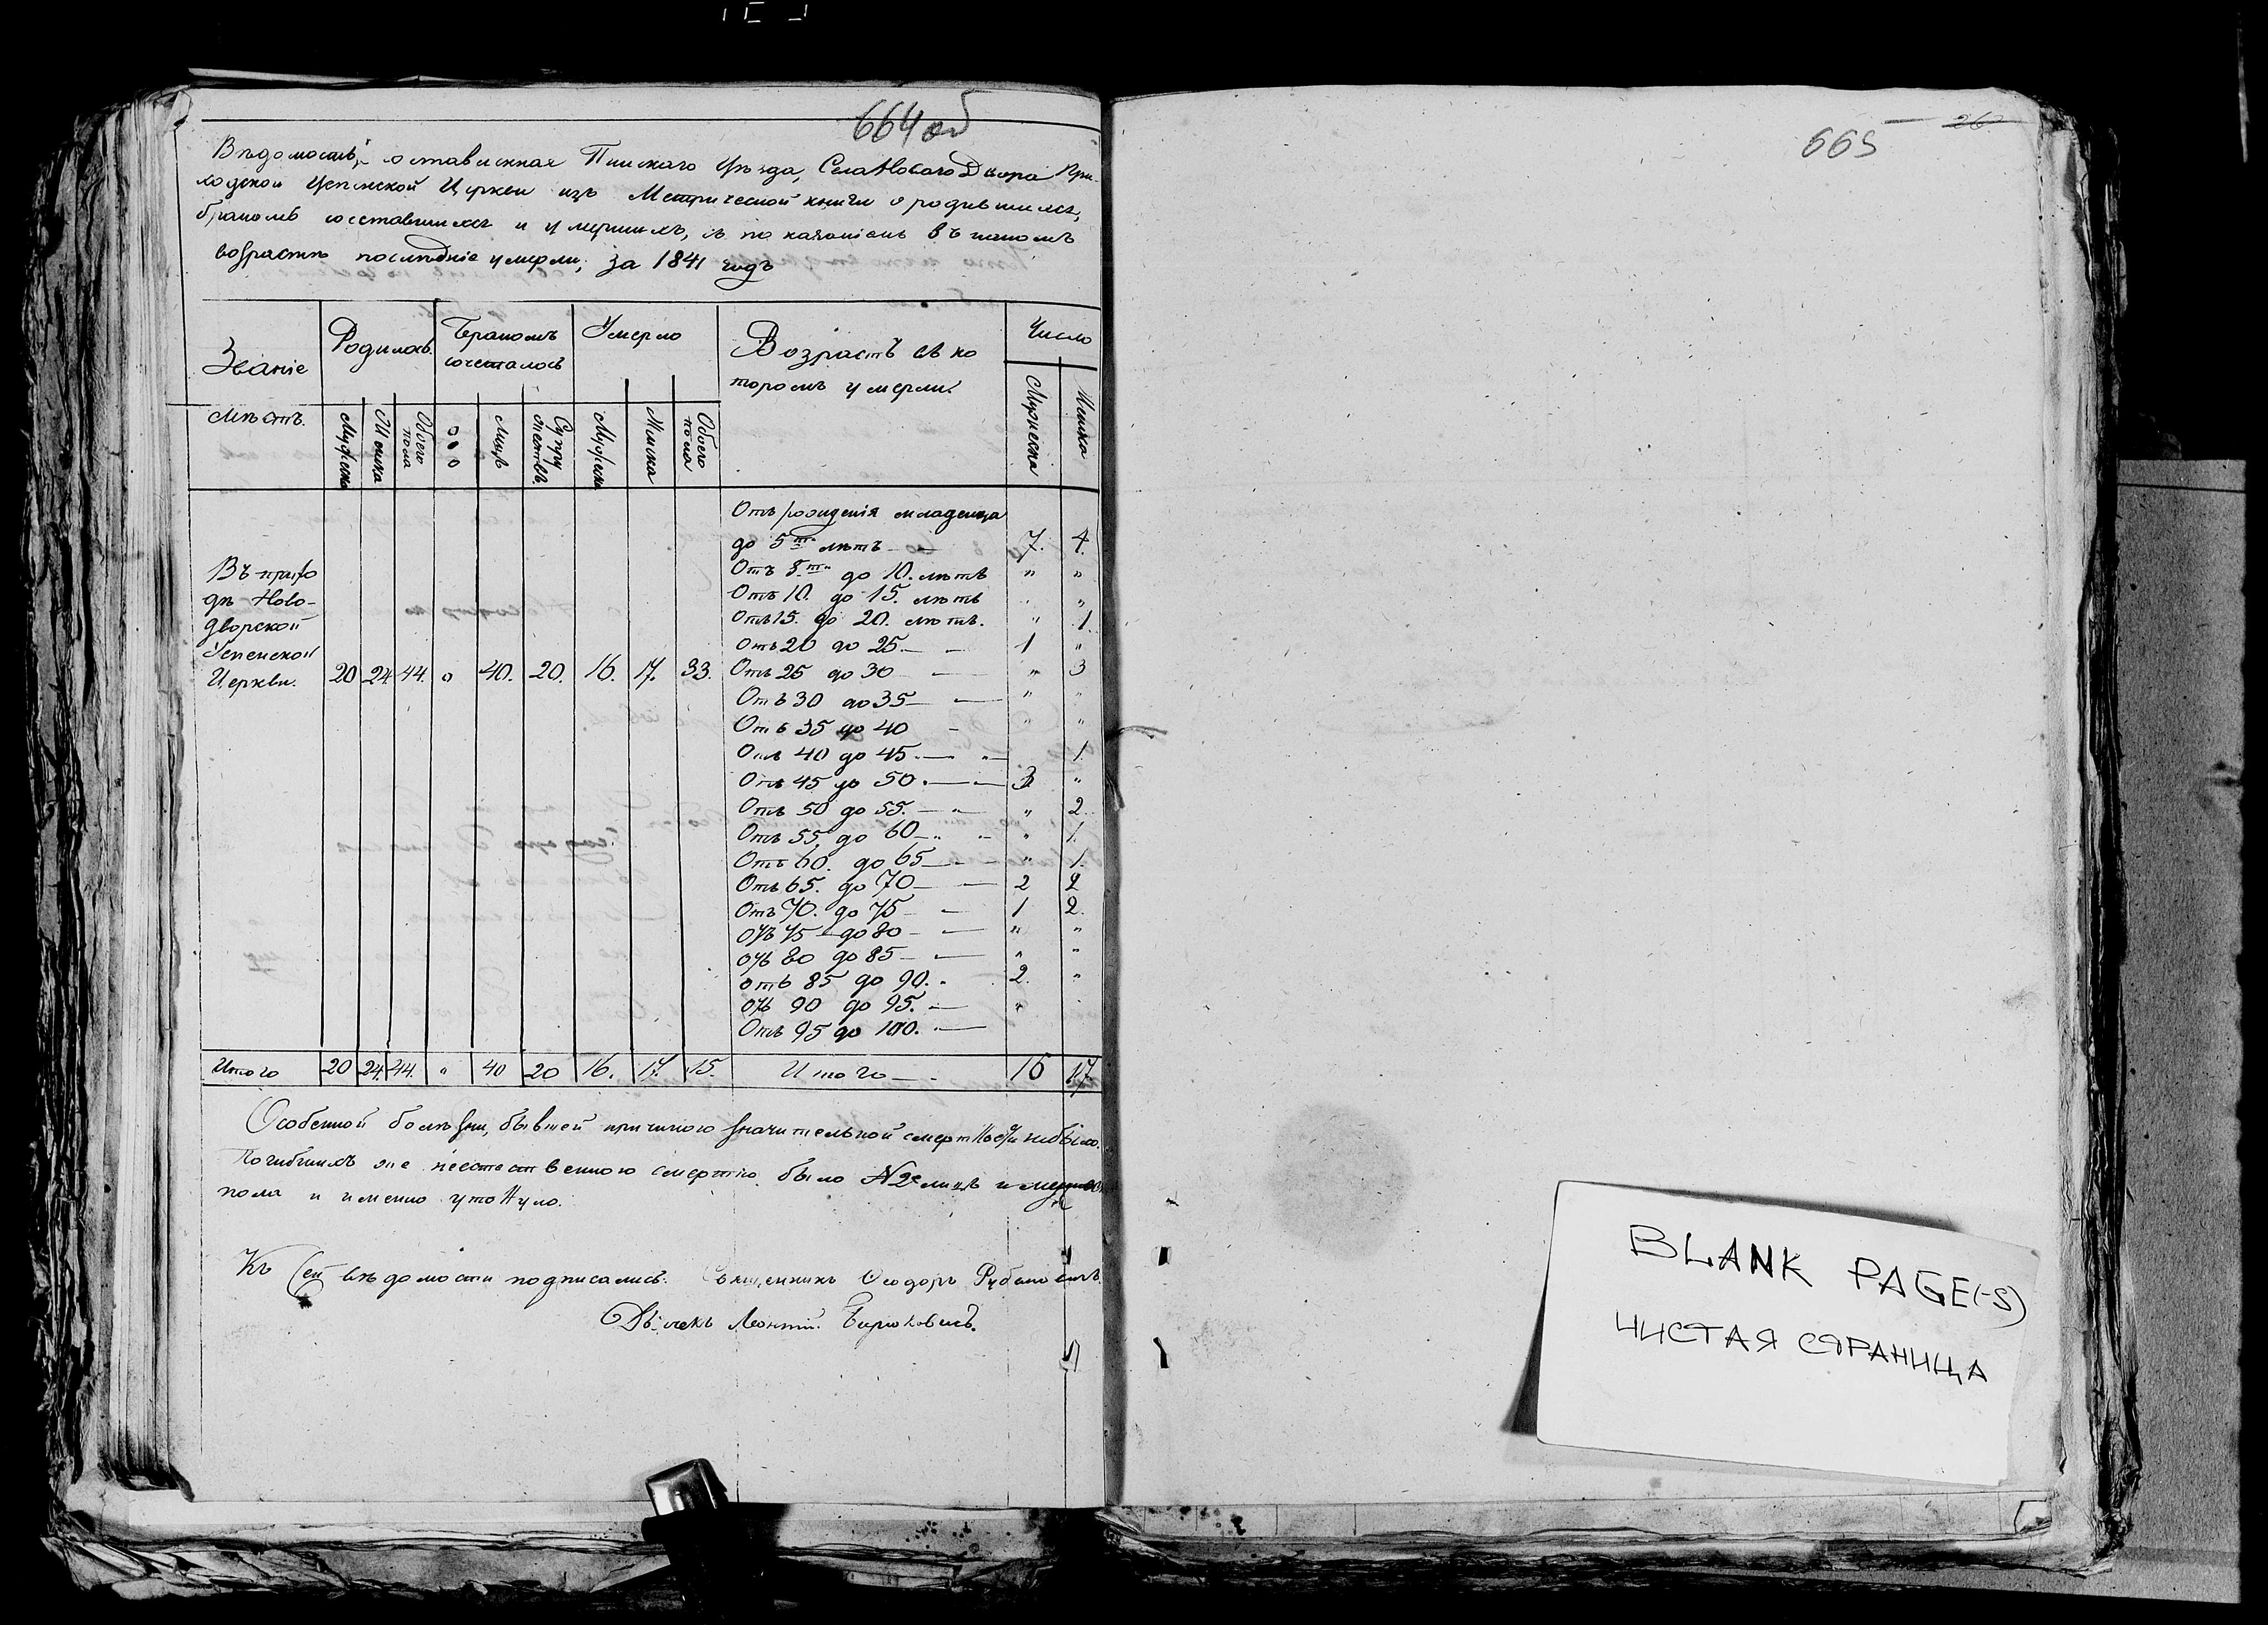 664 об
Вѣдомость, составленная Пинскаго Уѣзда, Села Новаго Двора При-
ходской Успенской Церкви изъ Метрической книги о родившихся,
бракомъ сочетавшихся и умершихъ, съ показаніемъ въ какомъ
возрастѣ послѣдніе умерли, за 1841 годъ
Званіе мѣстъ. Родилось. Бракомъ сочеталось Умерло Возрастъ въ которомъ умерли. Число
Мужеска Женска Обоего пола Лицъ Супружествъ. Мужеска Женска Обоего пола Мужеска Женска
Отъ рожденія младенца
до 5ти лѣтъ 7. 4.
Отъ 5ти до 10. лѣтъ " "
Отъ 10. до 15. лѣтъ " "
Отъ 15. до 20. лѣтъ. " 1.
Отъ 20 до 25. 1 "
Въ прихо
дѣ Ново-
дворской
Успенской
Церкви. 20 24. 44. 0 40. 20. 16. 17. 33. Отъ 25 до 30 " 3
Отъ 30 до 35 " "
Отъ 35 до 40 " "
Отъ 40 до 45. 1.
Отъ 45 до 50. 3 "
Отъ 50 до 55. " 2.
Отъ 55. до 60 " 1.
Отъ 60. до 65 " 1.
Отъ 65. до 70 2 2
Отъ 70. до 75 1 2.
Отъ 75 до 80 " "
Отъ 80 до 85 " "
отъ 85 до 90. 2. "
отъ 90 до 95. "
Отъ 95 до 100.
Итого 20 24. 44. " 40 20 16. 17. 15. Итого 16 17.
Особенной болѣзни, бывшей причиною значительной смертности небыло.
Погибшихъ же неестественною смертію было 2е лицъ
пола и именно утонуло.
Къ сей вѣдомости подписались: Священникъ Ѳеодоръ
Дьячекъ Леонтій
665
26
BLANK PAGE(-S)
ЧИСТАЯ СТРАНИЦА